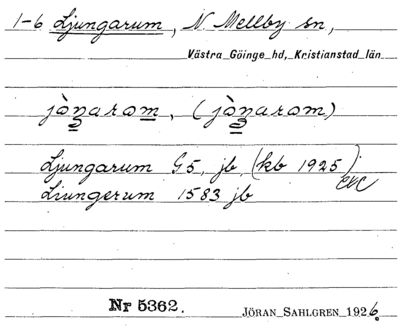 1-6 Ljungarum, N Mellby sn,
Västra Göinge hd, Kristianstad län
jòŋarom, (jòŋarom)
Ljungarum G5, jb (kb 1925).
Liungerum 1583 jb
Nr 5362.
JÖRAN SAHLGREN 1926.